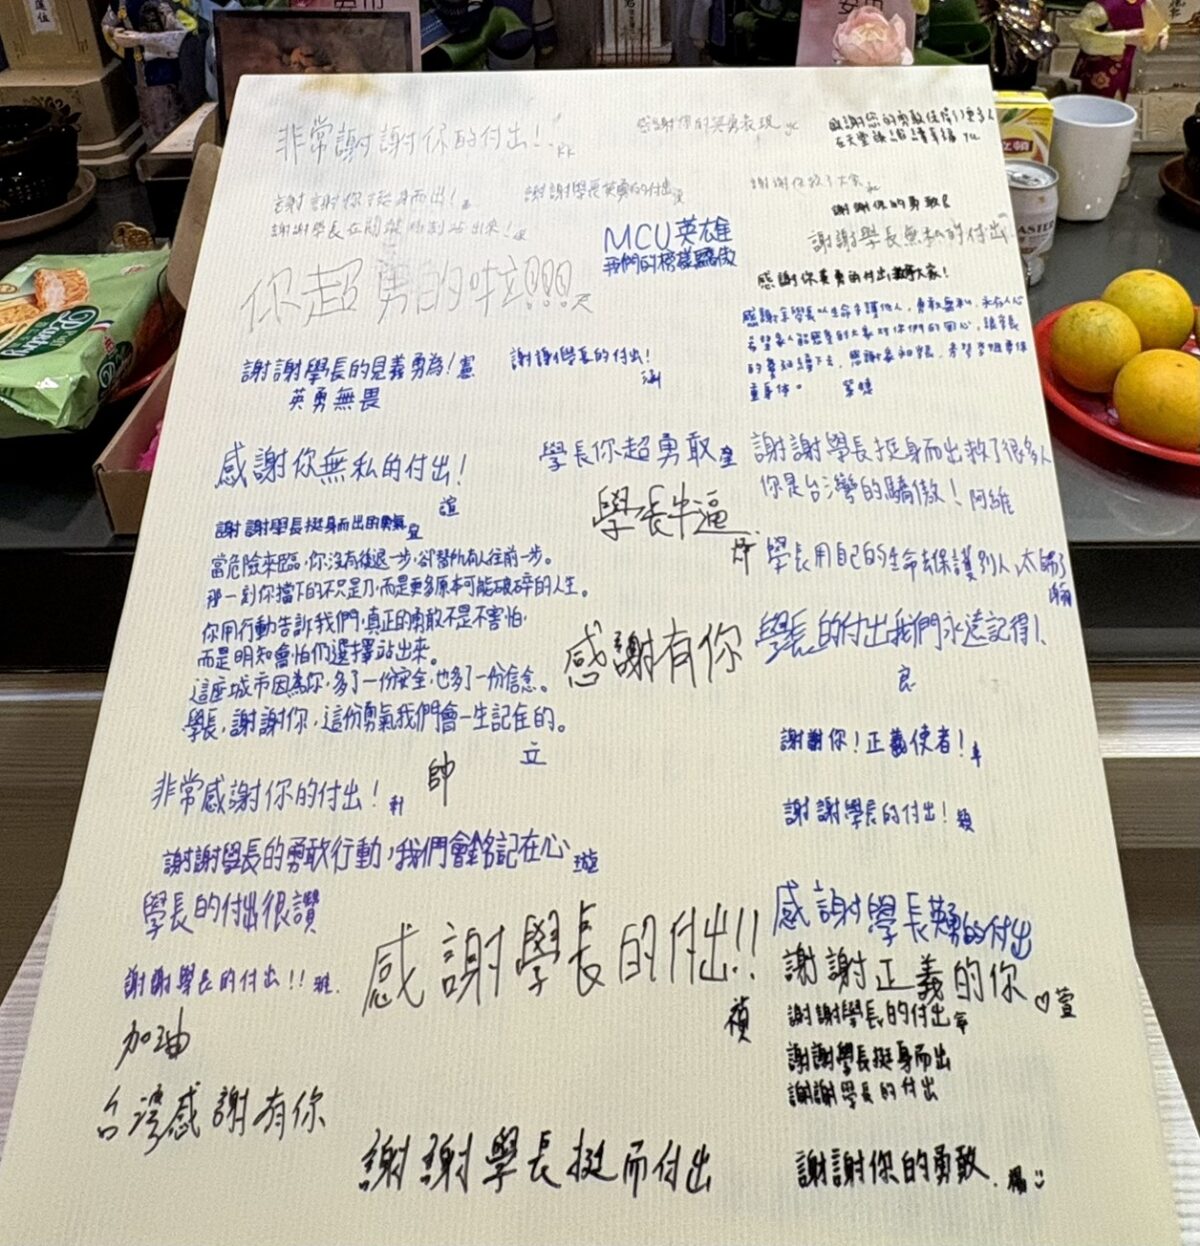 非常謝謝你的付出!!
感謝你的英勇表現
感謝您的勇敢
謝謝你挺身而出!
謝謝學長英勇的付出
謝謝你救了大家
謝謝你的勇敢
謝謝學長在關鍵時刻站出來!
謝謝學長無私的付出
MCU英雄
我們的榜樣驕傲
你超勇的啦!!!
感謝你英勇的付出
謝謝學長的見義勇為!憲
英勇無畏
謝謝學長的付出!
涵
感謝你無私的付出!
誼
學長你超勇敢
謝謝學長挺身而出救了很多人
你是台灣的驕傲!阿維
學長牛逼
謝謝學長挺身而出的勇氣
當危險來臨,你沒有後退一步,卻替所有人往前一步。
那一刻你擋下的不只是刀,而是更多原本可能破碎的人生。
你用行動告訴我們,真正的勇敢不是不害怕,
而是明知會怕仍選擇站出來。
這座城市因為你,多了一份安全,也多了一份信念。
學長,謝謝你,這份勇氣我們會一生記住的。
立
學長用自己的生命去保護別人,太帥了
感謝有你
學長的付出我們永遠記得!
良
帥
謝謝你!正義使者!
非常感謝你的付出!
謝謝學長的付出!穎
謝謝學長的勇敢行動,我們會銘記在心 璇
學長的付出很讚
感謝學長的付出!!
禎
感謝學長英勇的付出
謝謝正義的你♡萱
謝謝學長的付出!!
謝謝學長的付出
謝謝學長挺身而出
謝謝學長的付出
加油
台灣感謝有你
謝謝學長挺而付出
謝謝你的勇敢.